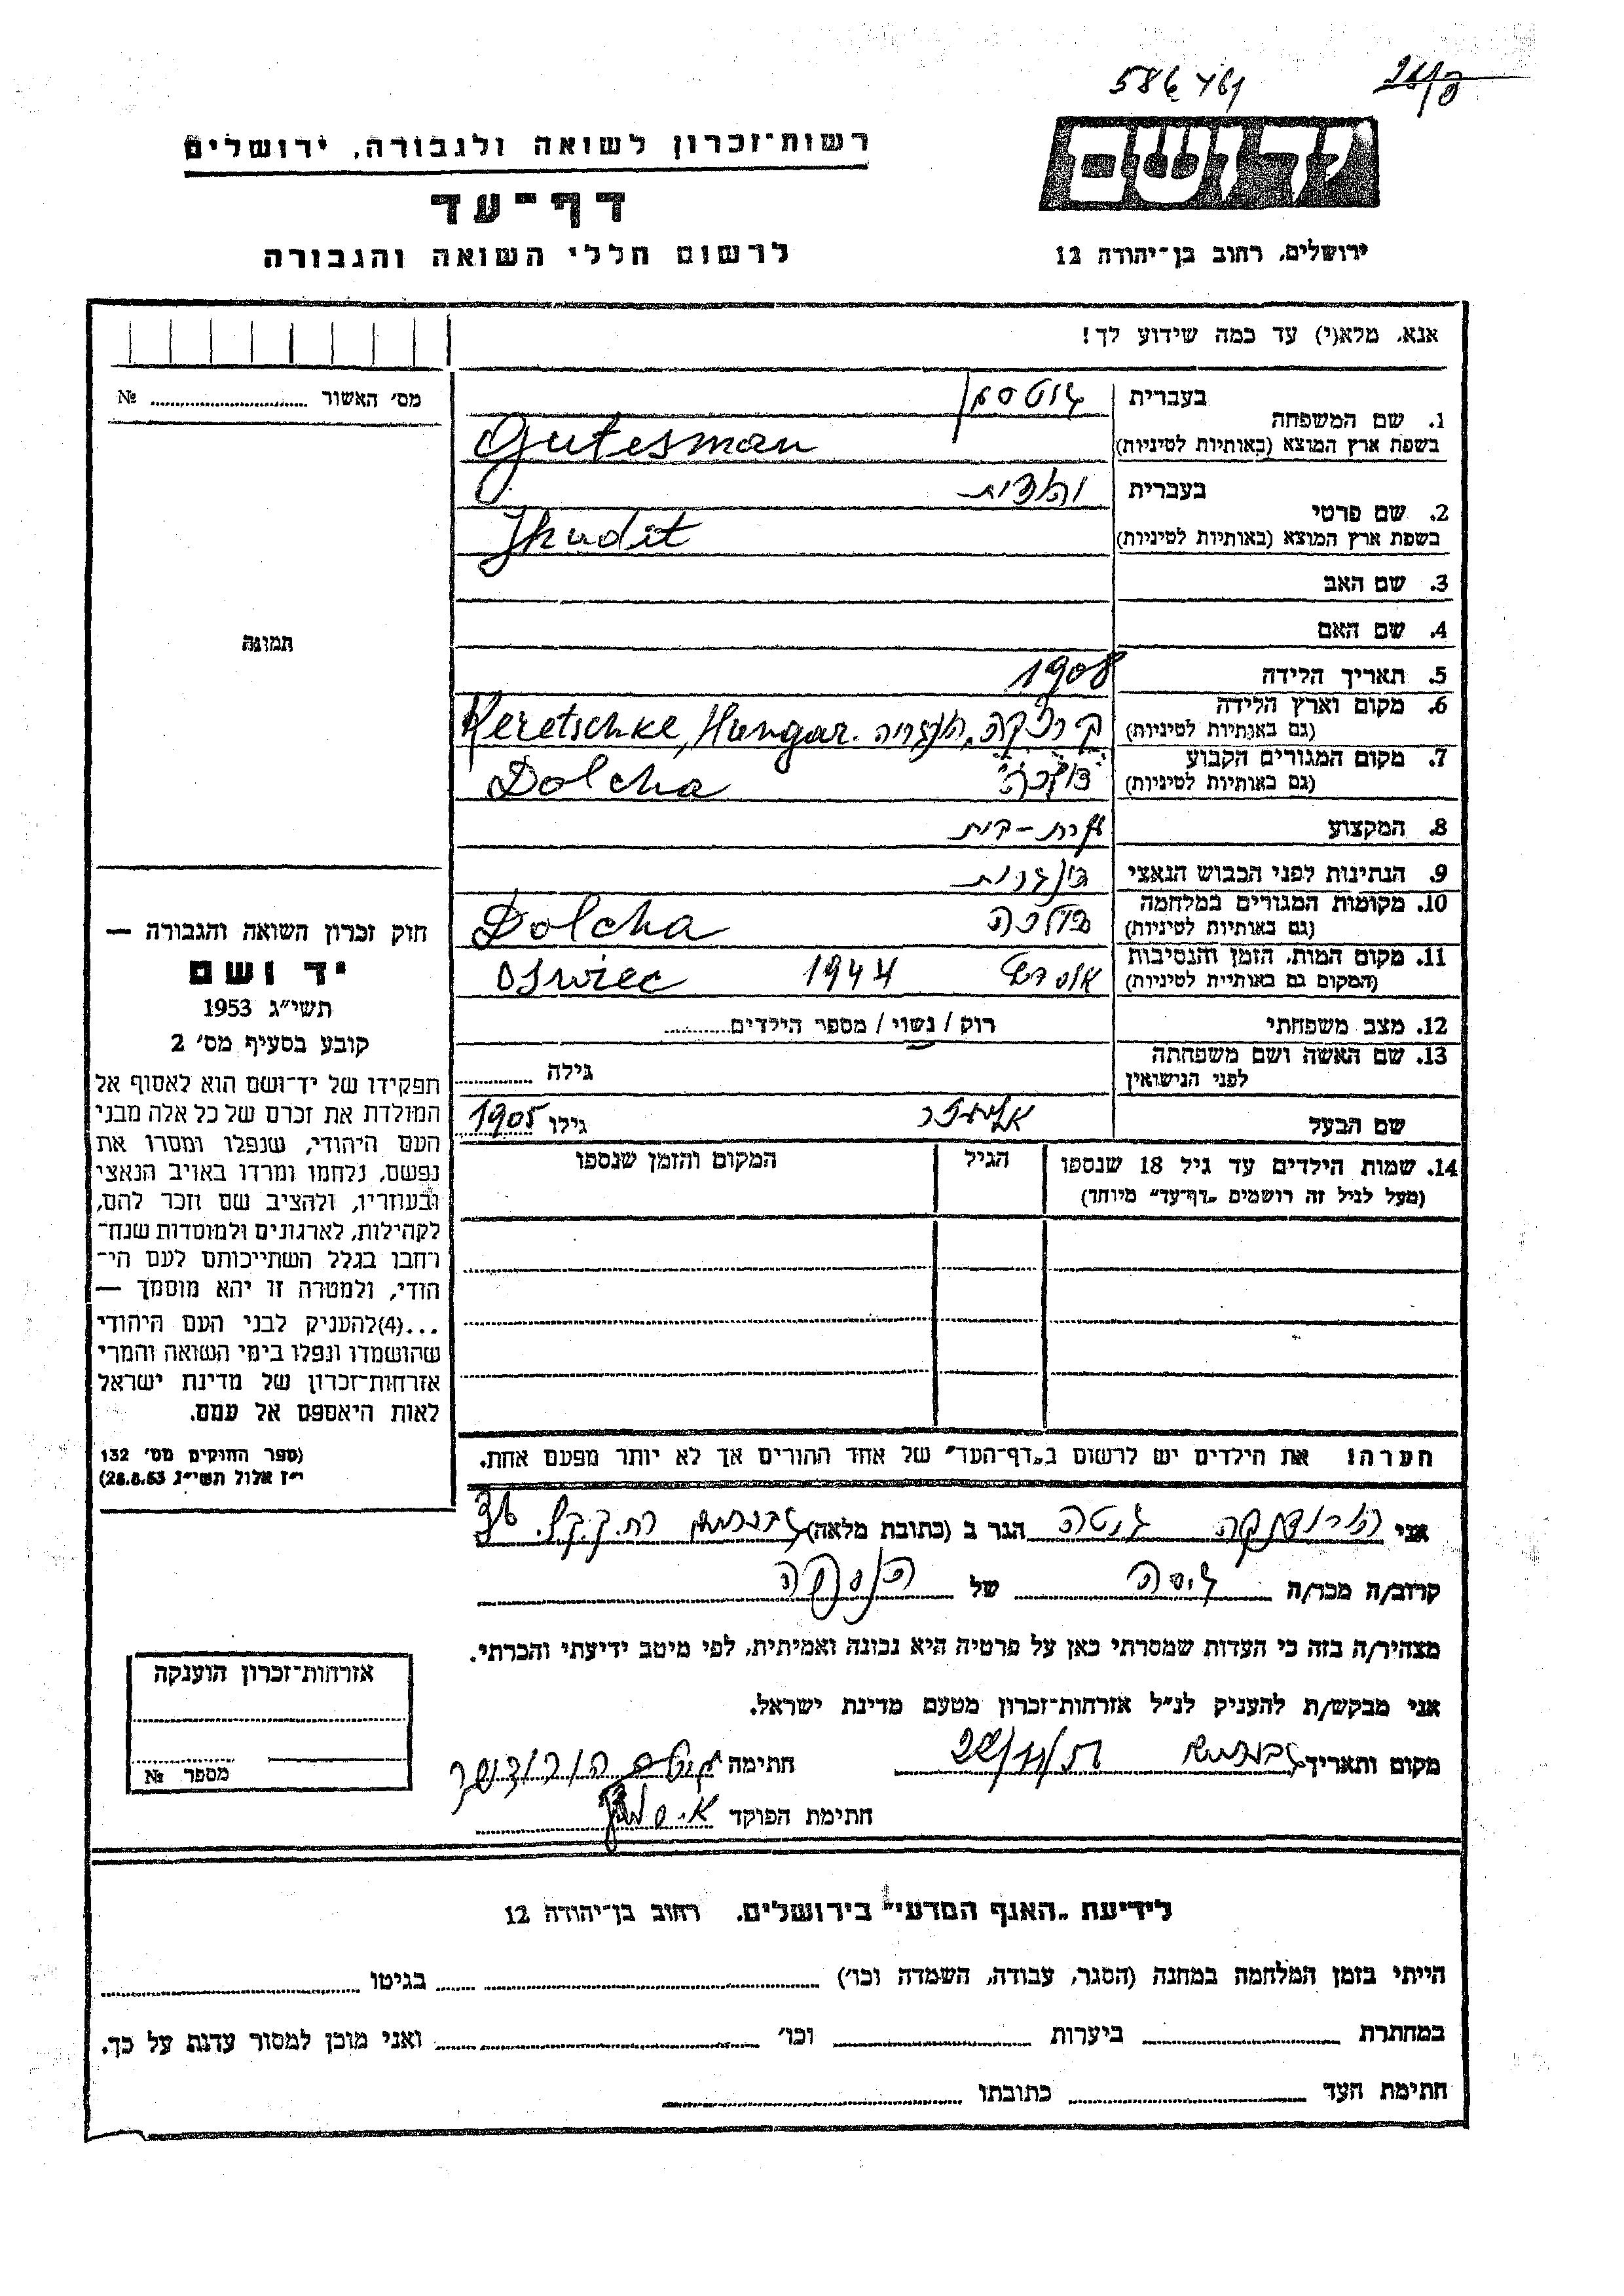 586461
רשות־זכרון לשואה ולגבורה, ירושלים
ידושם
דף־עד
לרשום חללי השואה והגבורה
ירושלים, רחוב בן־יהודה 12
אנא, מלא(י) עד כמה שידוע לך!
מס׳ האשור № 
תמונה
1. שם המשפחה
בעברית גוטסמן
בשפת ארץ המוצא (באותיות לטיניות) Gutesman
2. שם פרטי
בעברית יהודית
בשפת ארץ המוצא (באותיות לטיניות) Jhudit
3. שם האב
4. שם האם
5. תאריך הלידה 1908
6. מקום וארץ הלידה
(גם באותיות לטיניות) הונגריה Keretschke, Hungar.
7. מקום המגורים הקבוע
(גם באותיות לטיניות) Dolcha
8. המקצוע עקרת-בית
9. הנתינות לפני הכבוש הנאצי הונגרית
10. מקומות המגורים במלחמה
(גם באותיות לטיניות) דולכה Dolcha
11. מקום המות, הזמן והנסיבות
(המקום גם באותיות לטיניות) 1944 Oswiec
12. מצב משפחתי רוק / נשוי / מספר הילדים
13. שם האשה ושם משפחתה
לפני הנישואין גילה
שם הבעל אליעזר גילו 1905
14. שמות הילדים עד גיל 18 שנספו
(מעל לגיל זה רושמים „דף־עד״ מיוחד)
הגיל
המקום והזמן שנספו
הערה! את הילדים יש לרשום ב„דף־העד״ של אחד ההורים אך לא יותר מפעם אחת.
חוק זכרון השואה והגבורה —
יד ושם
תשי״ג 1953
קובע בסעיף מס׳ 2
תפקידו של יד־ושם הוא לאסוף אל
המולדת את זכרם של כל אלה מבני
העם היהודי, שנפלו ומסרו את
נפשם, נלחמו ומרדו באויב הנאצי
ובעוזריו, ולהציב שם וזכר להם,
לקהילות, לארגונים ולמוסדות שנח־
רחבו בגלל השתייכותם לעם הי־
הודי, ולמטרה זו יהא מוסמך —
...(4)להעניק לבני העם היהודי
שהושמדו ונפלו בימי השואה והמרי
אזרחות־זכרון של מדינת ישראל
לאות היאספם אל עמם.
(ספר החוקים מס׳ 132
י״ז אלול תשי״ג 28.8.53)
אני גיטה הגר ב (כתובת מלאה)
קרוב/ה מכר/ה גיסה של
מצהיר/ה בזה כי העדות שמסרתי כאן על פרטיה היא נכונה ואמיתית, לפי מיטב ידיעתי והכרתי.
אני מבקש/ת להעניק לנ״ל אזרחות־זכרון מטעם מדינת ישראל.
מקום ותאריך חתימה
חתימת הפוקד
אזרחות־זכרון הוענקה
מספר №
לידיעת „האגף המדעי״ בירושלים, רחוב בן־יהודה 12
הייתי בזמן המלחמה במחנה (הסגר, עבודה, השמדה וכו׳) בגיטו
במחתרת ביערות וכו׳ ואני מוכן למסור עדות על כך.
חתימת העד כתובתו